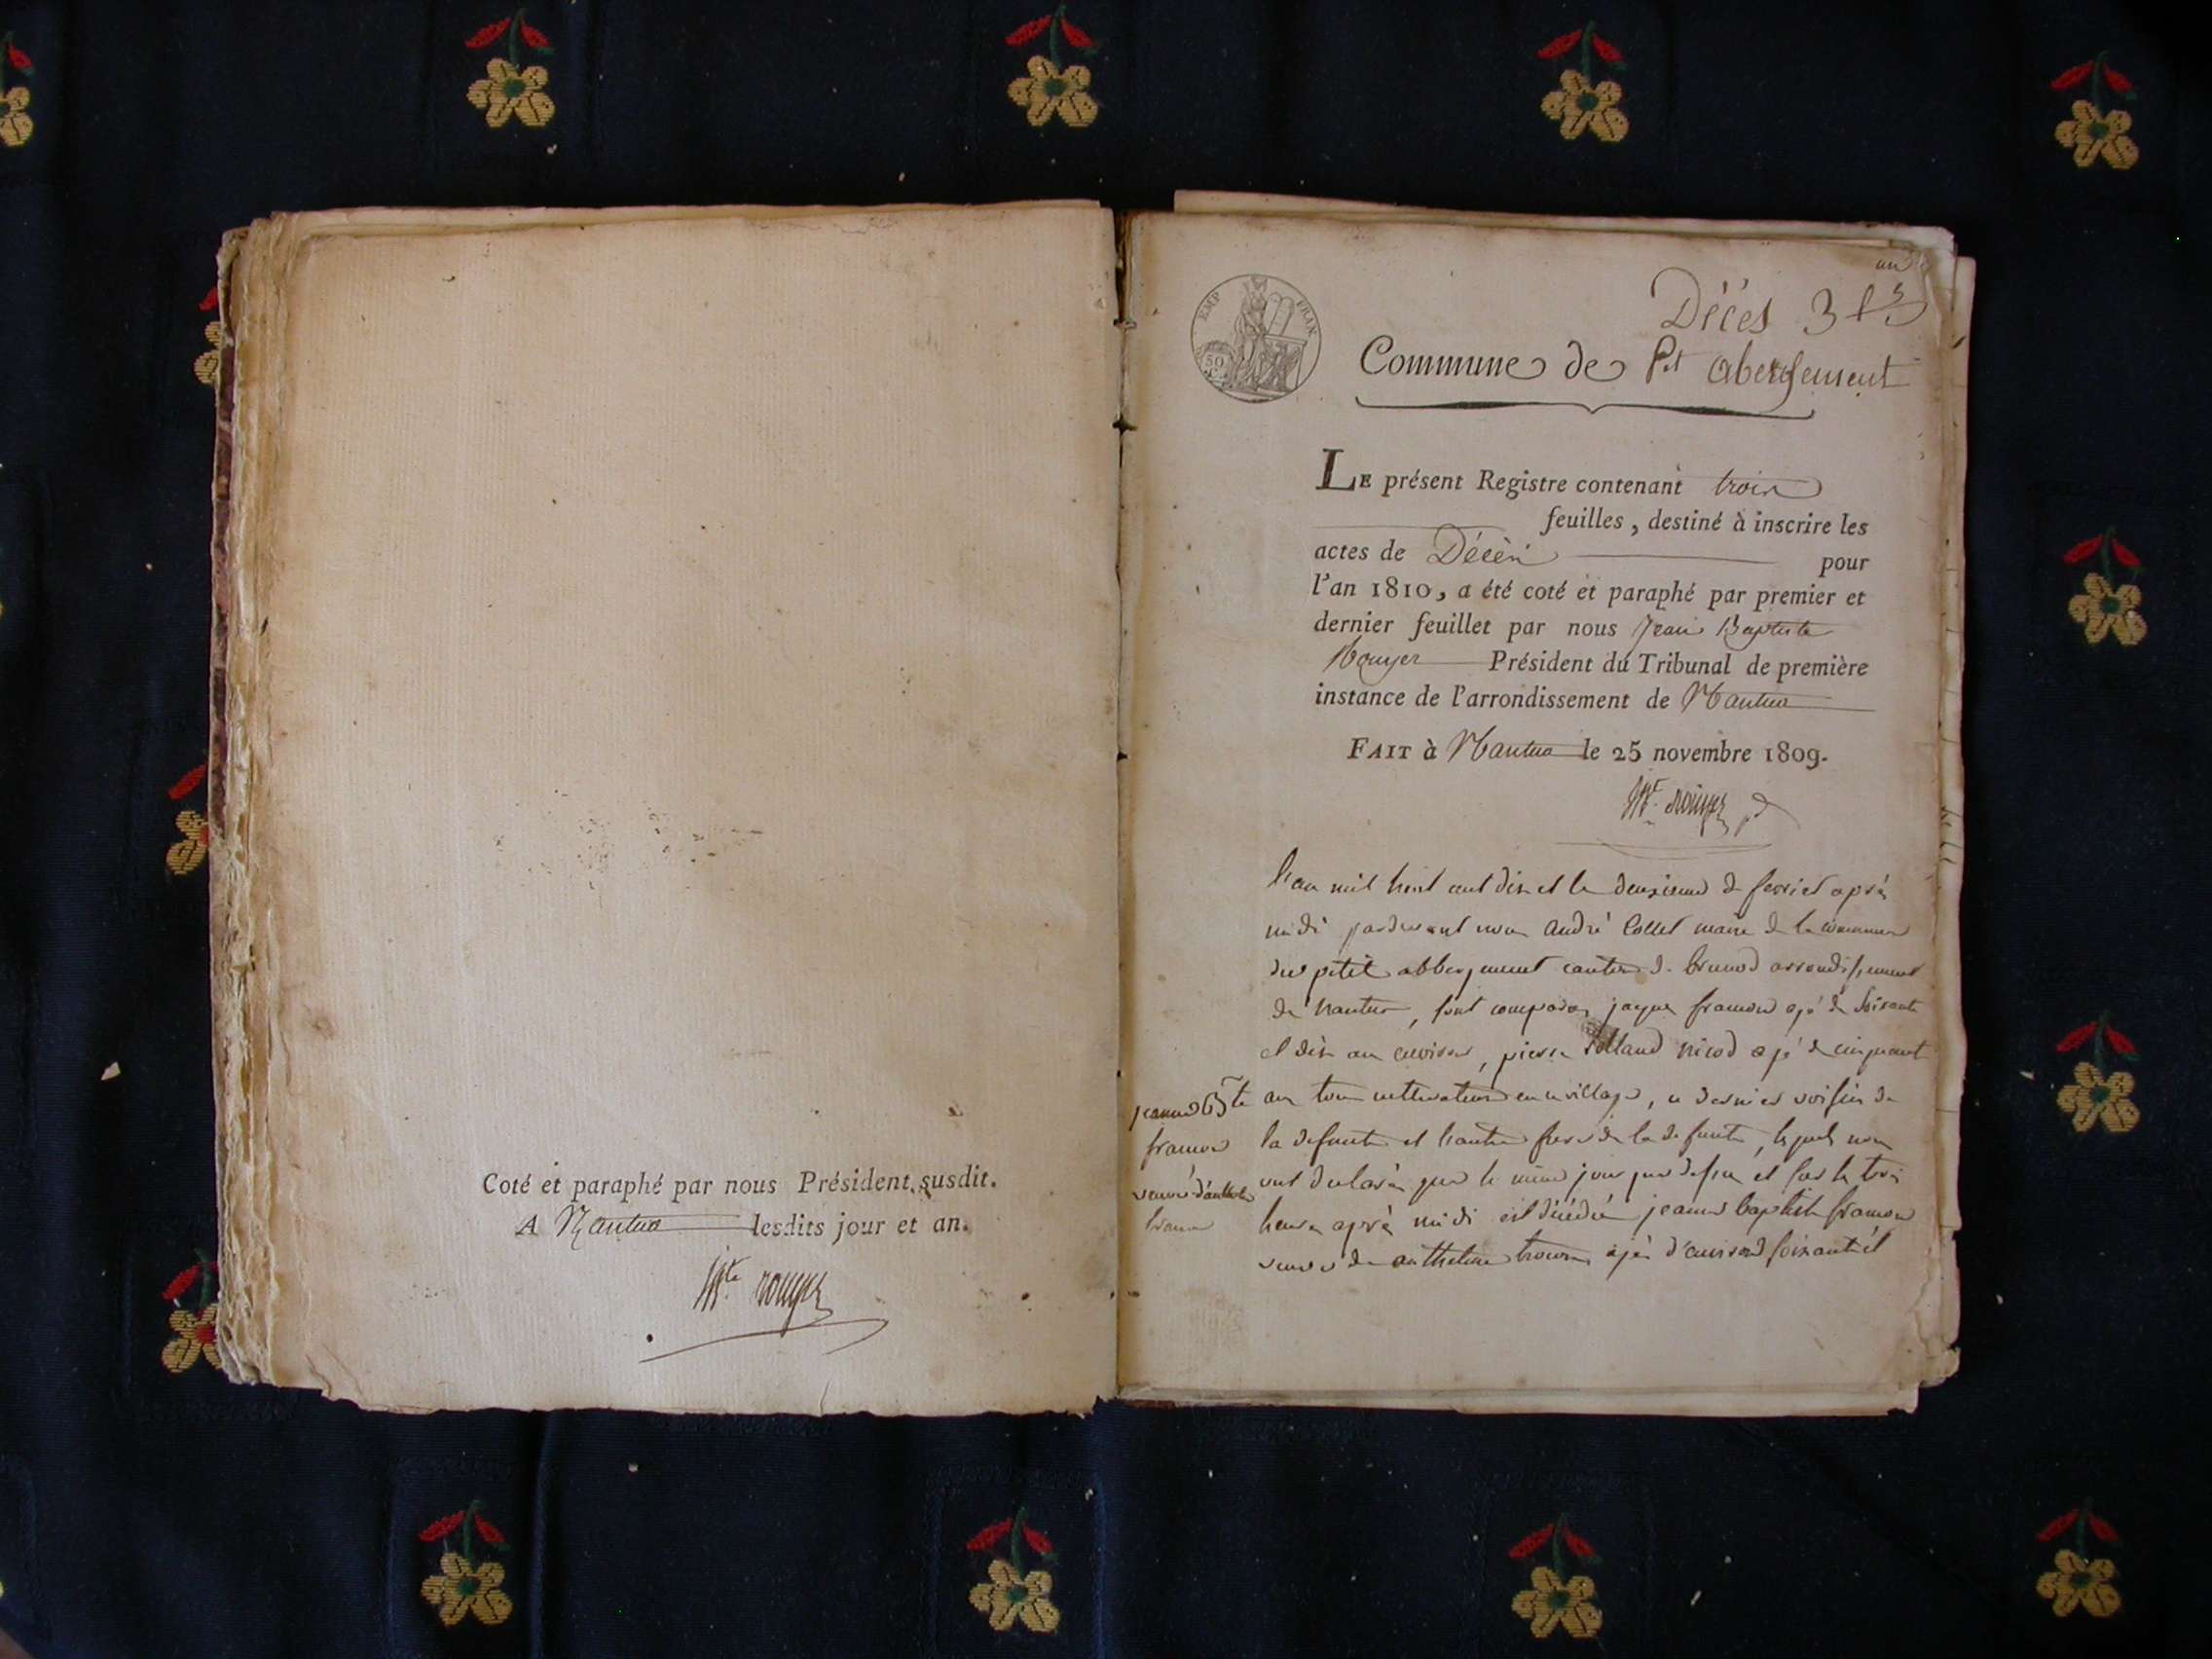 Coté et paraphé par nous Président susdit.
A Nantua lesdits jour et an.
Bte. rouyer
un
Décès 3 fs
EMP FRAN
50
Commune de Pt abergement
LE présent Registre contenant trois
feuilles, destiné à inscrire les
actes de Décès pour
l'an 1810, a été coté et paraphé par premier et
dernier feuillet par nous Jean Baptiste
Rouyer Président du Tribunal de première
instance de l'arrondissement de Nantua
FAIT à Nantua le 25 novembre 1809.
Bte. rouyer
L'an mil huit cent dix et le deuxieme de fevrier après
midi pardevant nous André Collet maire de la commune
du petit abbergement canton de brenod arrondissement
de Nantua, sont comparus jaques framon agé de soixante
et dix an environ, pierre rolland nicod agé de cinquante
an tous cultivateurs en ce village, ce dernier voisin de
la defunte et l'autre frere de la defunte, lesquels nous
ont declarés que le même jour que dessus et sur les trois
heures après midi est décédée jeanne baptiste framon
veuve de anthelme age d'environ soixante et
jeanne Bte
framon
veuve d'anthelme